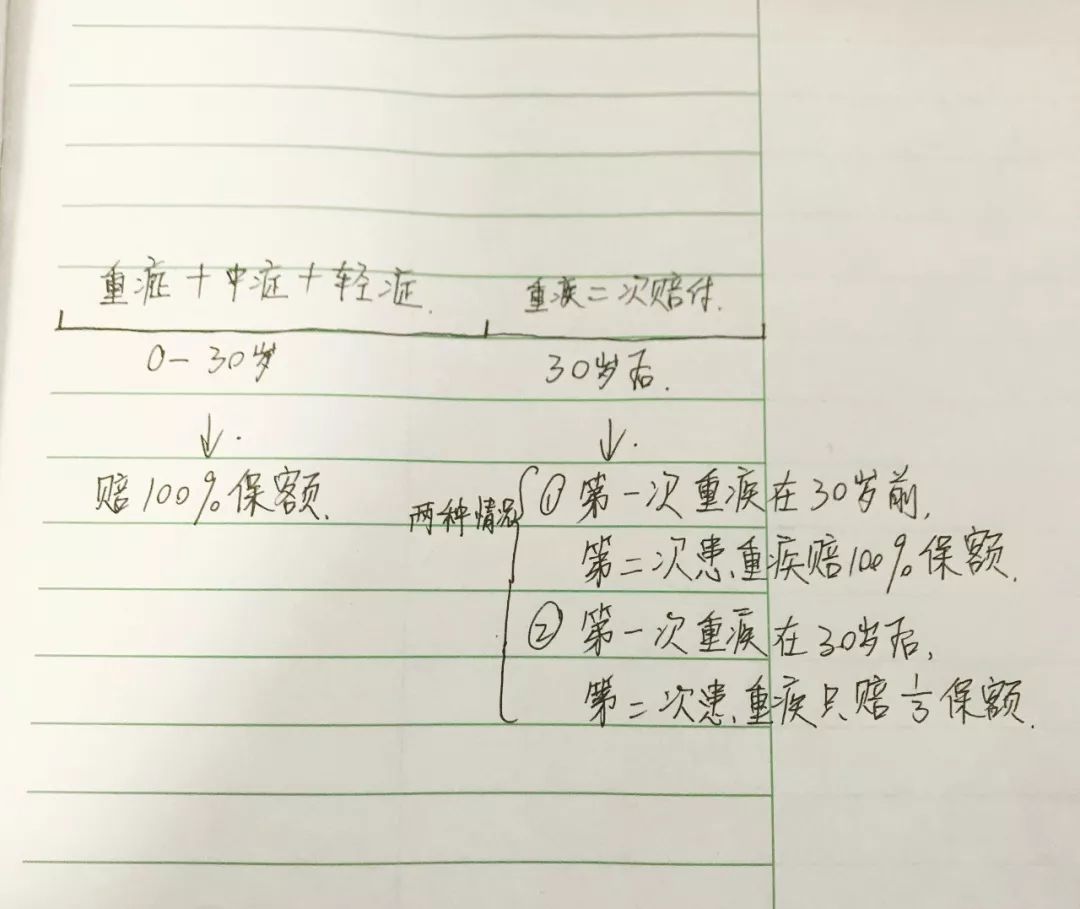 重症+中症+轻症. 重疾二次赔付.
0-30岁 30岁后.
↓. ↓.
赔100%保额. 两种情况 ① 第一次重疾在30岁前,
第二次患重疾赔100%保额.
② 第一次重疾在30岁后,
第二次患重疾只赔1/3保额.